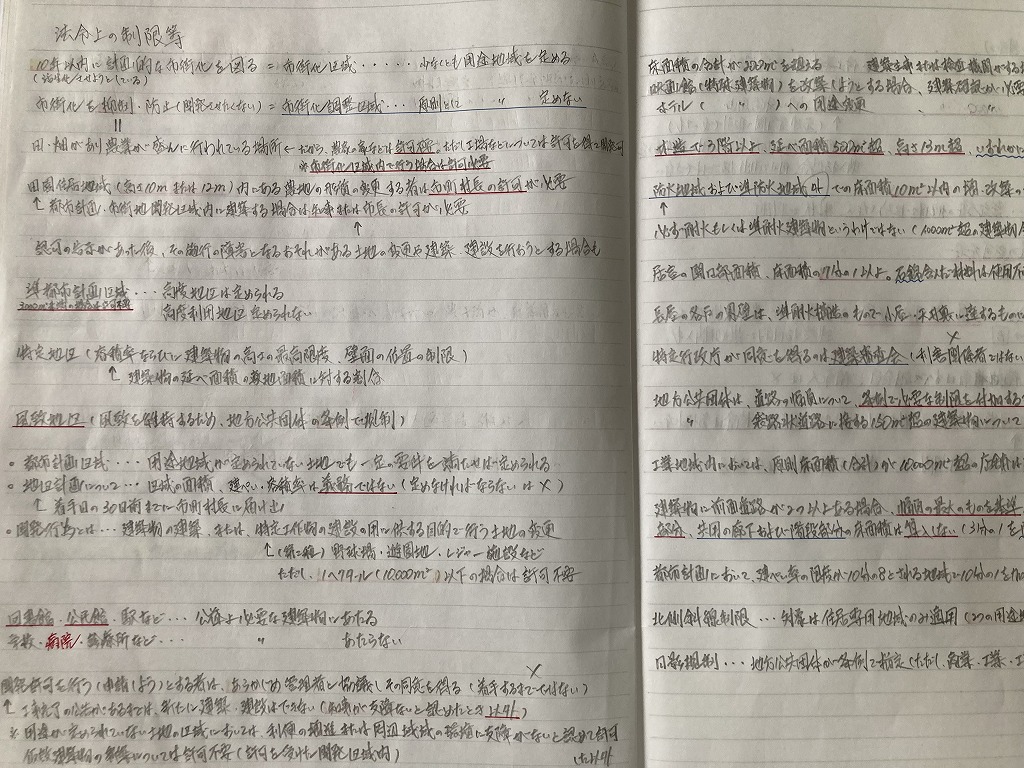 法令上の制限等
10年以内に計画的な市街化を図る = 市街化区域・・・・・少なくとも用途地域を定める
(活性化させようとしている)
市街化を抑制・防止(開発させたくない) = 市街化調整区域・・・原則として 〃 定めない
||
田・畑が別 農業が盛んに行われている場所 ←
※市街化区域内で行う場合は許可必要
田園住居地域(高さ10m または12m)内にある農地の形質の変更する者は市町村長の許可が必要
↑ 都市計画・市街地開発区域内に建築する場合は知事または市長の許可が必要
↑
認可の告示があった後、その施行の障害となるおそれがある土地の変更や建築・建設を行おうとする場合も
準都市計画区域・・・高度地区は定められる
3000m²未満の場合は許可不要 高度利用地区 定められない
特定地区(容積率ならびに建築物の高さの最高限度、壁面の位置の制限)
↑ 建築物の延べ面積の敷地面積に対する割合
風致地区(風致を維持するため、地方公共団体の条例で規制)
○ 都市計画区域・・・用途地域が定められていない土地でも一定の要件を満たせば定められる
○ 地区計画について・・・区域の面積、建ぺい・容積率は義務ではない(定めなければならない は×)
↑ 着手日の30日前までに市町村長に届け出
○ 開発行為とは・・・建築物の建築、または、特定工作物の建設の用に供する目的で行う土地の変更
↑(第二種)野球場・遊園地・レジャー施設など
ただし、1ヘクタール(10000m²)以下の場合は許可不要
図書館・公民館・駅など・・・公益上必要な建築物にあたる
学校・病院・診療所など・・・ 〃 あたらない
×
開発許可を行う(申請しよう)とする者は、あらかじめ管理者と協議し、その同意を得る(着手するまでではない)
↑ 工事完了の公告があるまでは、新たに建築・建設はできない(知事が支障ないと認めたとき以外)
※ 用途が定められていない土地の区域においては、利便の増進または周辺地域の環境に支障がないと認めて許可
した以外
仮設建築物の新築については許可不要(許可を受けた開発区域内)
床面積の合計が200m²を超える 建築主事または検査機関がする
映画館(特殊建築物)を改築しようとする場合、建築確認が必要
ホテル( 〃 )への用途変更 〃
木造で3階以上、延べ面積500m²超、高さ13m超、いずれかに
防火地域および準防火地域外での床面積10m²以内の増・改築の
↑
必ず耐火もしくは準耐火建築物というわけではない(1000m²超の建築物
居室の開口部面積、床面積の7分の1以上。石綿含んだ材料は使用不
長屋の各戸の界壁は、準耐火構造のもので小屋・天井裏に達するもの
×
特定行政庁が同意を得るのは建築審査会(利害関係者ではない
地方公共団体は、道路の幅員について、条例で必要な制限を付加する
〃 袋路状道路に接する150m²超の建築物について
工業地域内においては、原則床面積(合計)が10000m²超の店舗は
建築物に前面道路が2つ以上ある場合、幅員の最大のものを基準
部分、共用の廊下および階段部分の床面積は算入しない(3分の1を
都市計画において、建ぺい率の限度が10分の8とされる地域で10分の1を
北側斜線制限・・・対象は住居専用地域のみ適用(2つの用途
日影規制・・・地方公共団体が条例で指定(ただし、商業・工業・工